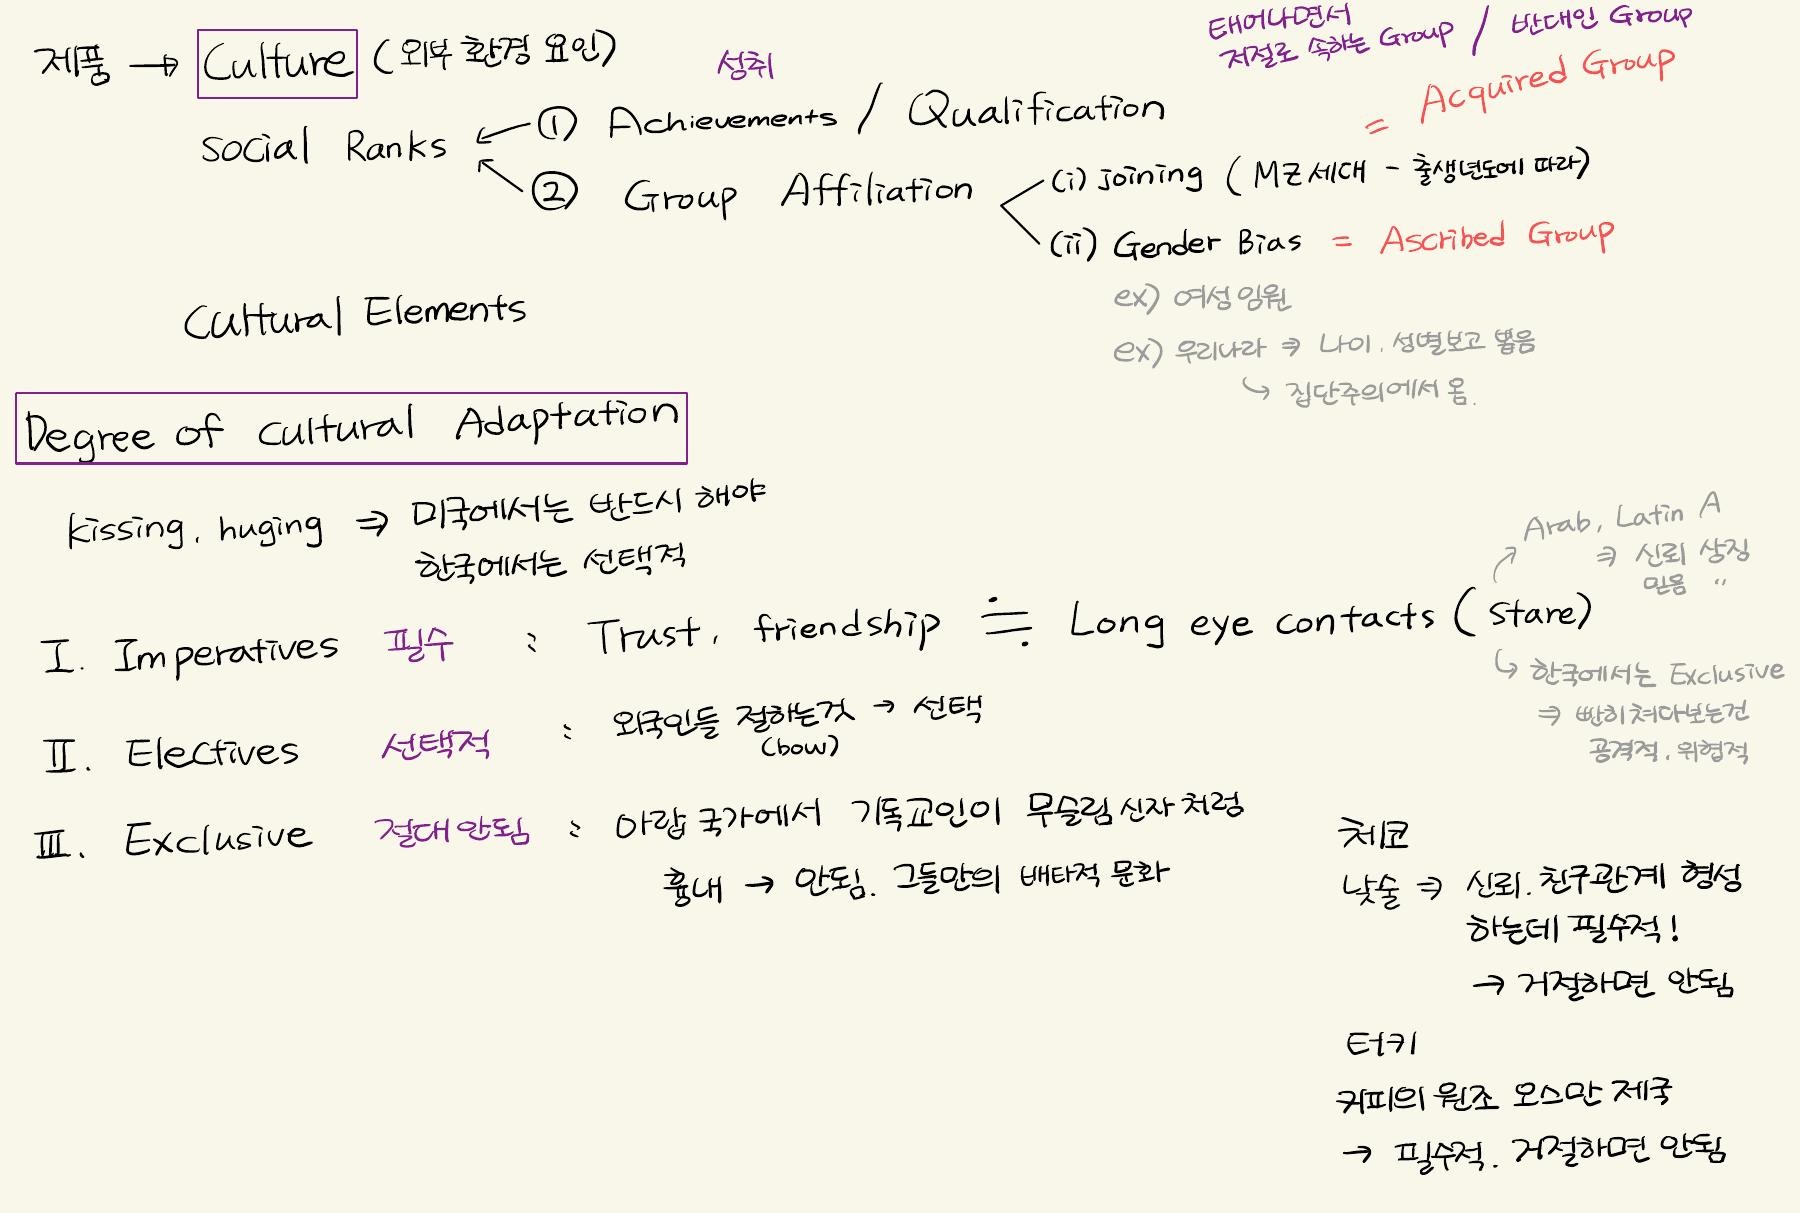 태어나면서
저절로 속하는 Group / 반대인 Group
제품 → Culture (외부 환경 요인)
성취
= Acquired Group
Social Ranks
① Achievements / Qualification
② Group Affiliation
(i) Joining (MZ세대 - 출생년도에 따라)
(ii) Gender Bias = Ascribed Group
ex) 여성임원
ex) 우리나라 ⇒ 나이, 성별보고 뽑음
↳ 집단주의에서 옴.
Cultural Elements
Degree of cultural Adaptation
kissing, huging ⇒ 미국에서는 반드시 해야
한국에서는 선택적
Arab, Latin A
⇒ 신뢰 상징
믿음 "
I. Imperatives 필수 : Trust, friendship ≒ Long eye contacts (stare)
↳ 한국에서는 Exclusive
⇒ 빤히쳐다보는건
공격적, 위협적
II. Electives 선택적 : 외국인들 절하는것 → 선택
(bow)
III. Exclusive 절대 안됨 : 아랍 국가에서 기독교인이 무슬림 신자 처럼
흉내 → 안됨. 그들만의 배타적 문화
체코
낮술 ⇒ 신뢰, 친구관계 형성
하는데 필수적!
→ 거절하면 안됨
터키
커피의 원조 오스만 제국
→ 필수적. 거절하면 안됨